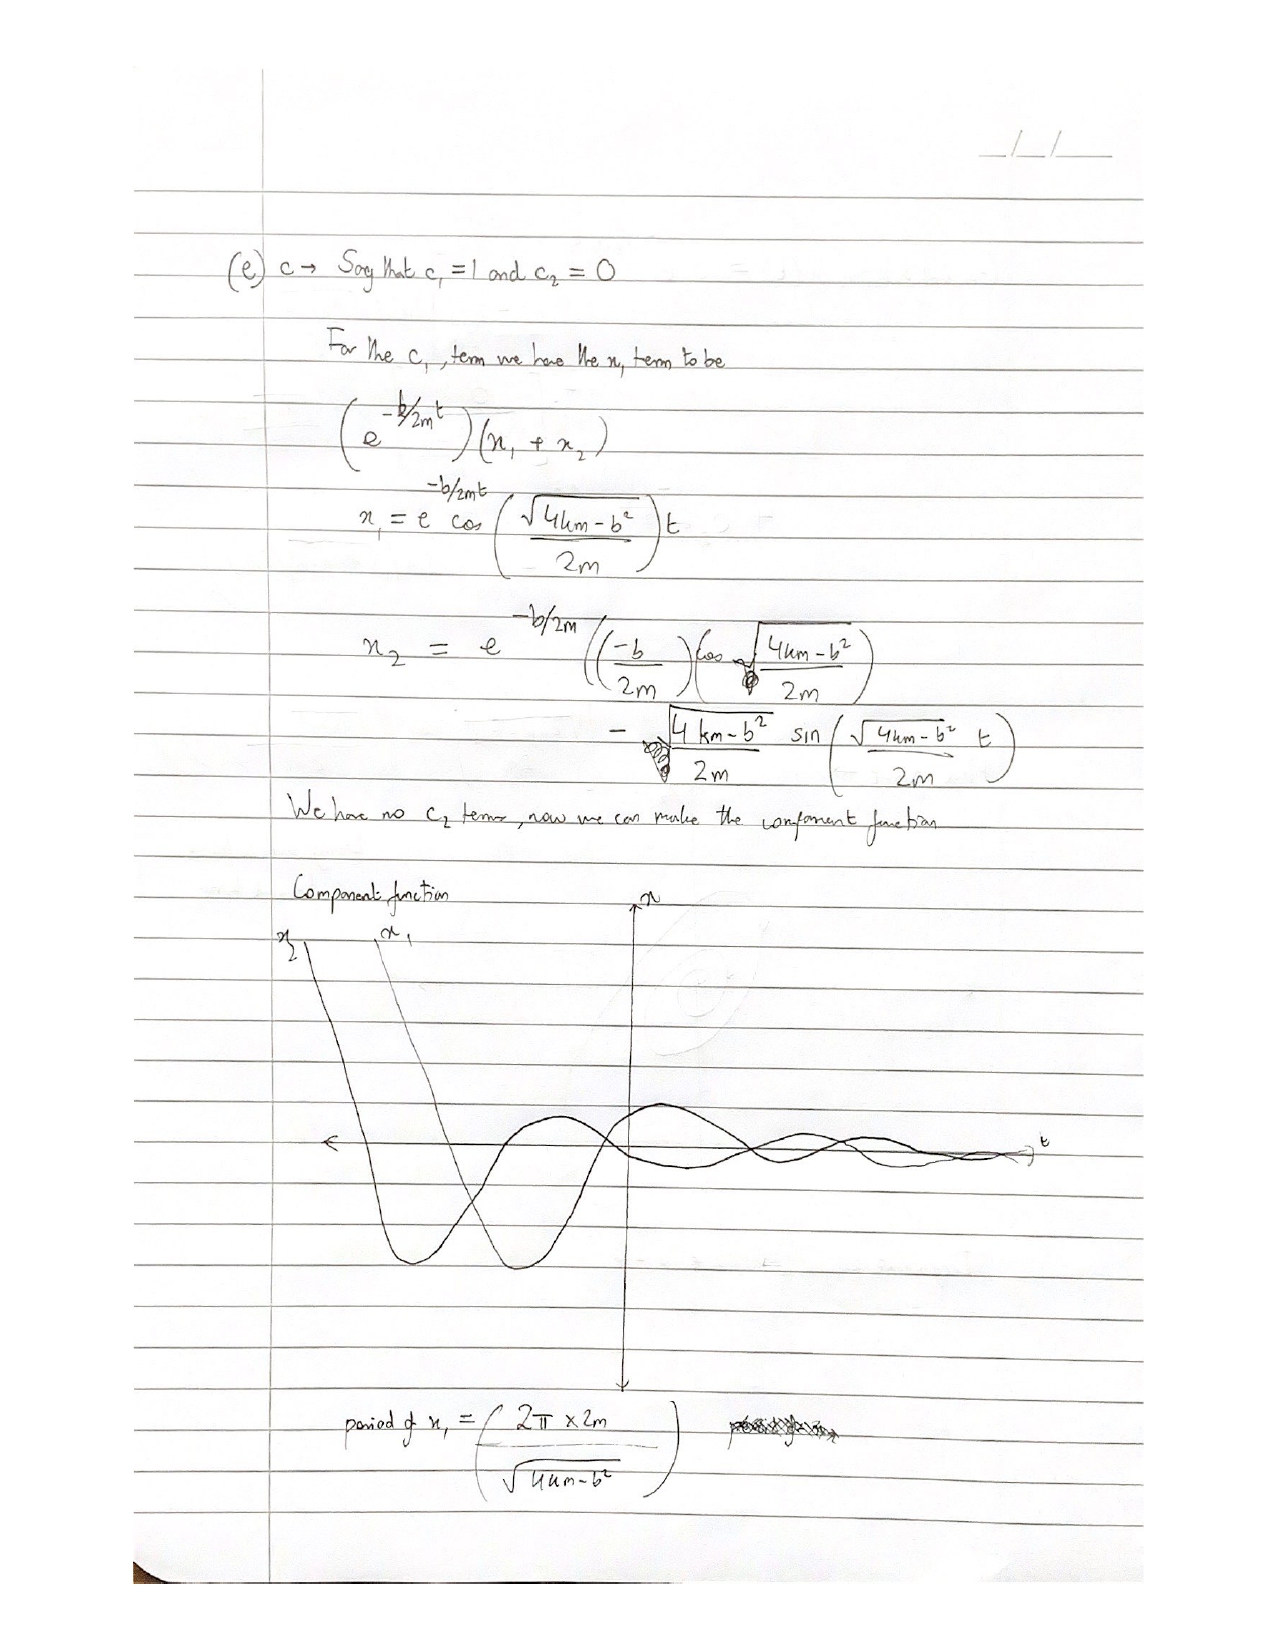 _/_/___
(e) c → Say that c₁ = 1 and c₂ = 0
For the c₁, term we have the x₁ term to be
(e^(-b/2m t))(x₁ + x₂)
x₁ = e^(-b/2mt) cos(√(4km-b²)/2m)t
x₂ = e^(-b/2m)((-b/2m)(cos √(4km-b²)/2m)
- √(4km-b²)/2m sin(√(4km-b²)/2m t)
We have no c₂ terms, now we can make the component function
Component function
x
x₂ x₁
t
period of x₁ = (2π x 2m/√(4km-b²))